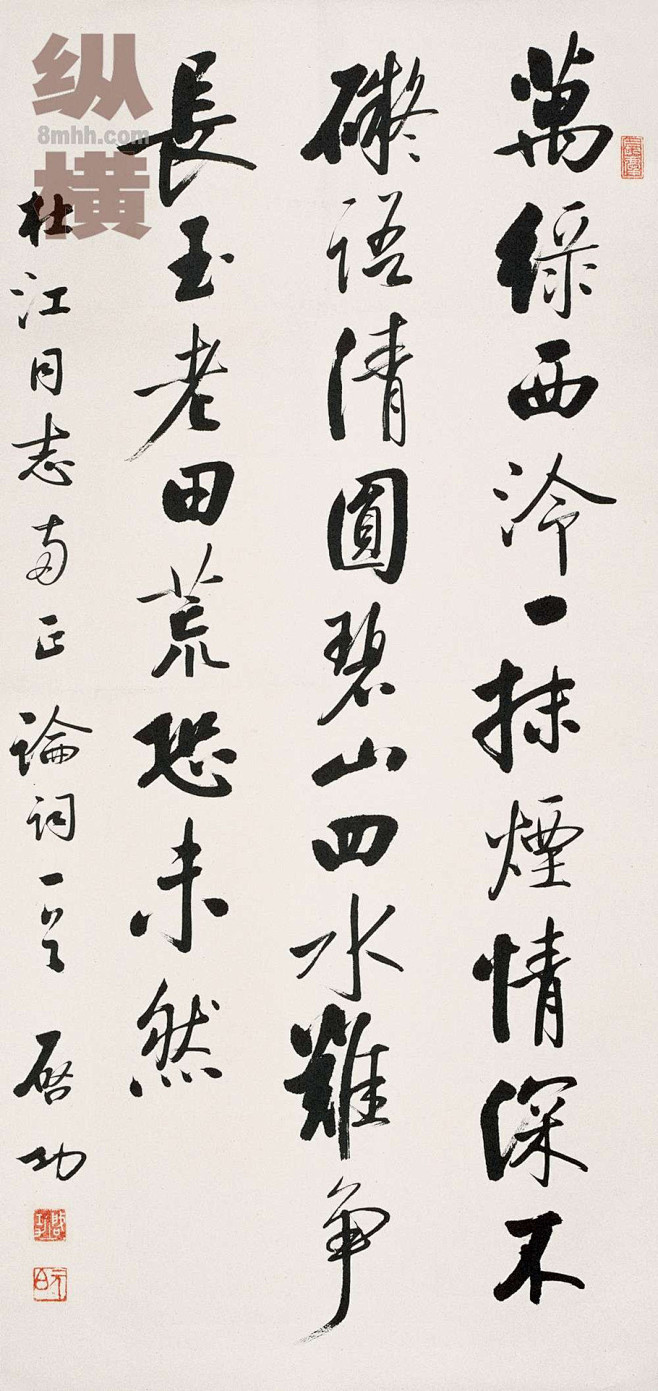 萬綠西泠一抹煙情深不
礙語清圓碧山四水難争
長玉老田荒恐未然
杜江同志两正 論詞一首 启功
纵横
8mhh.com